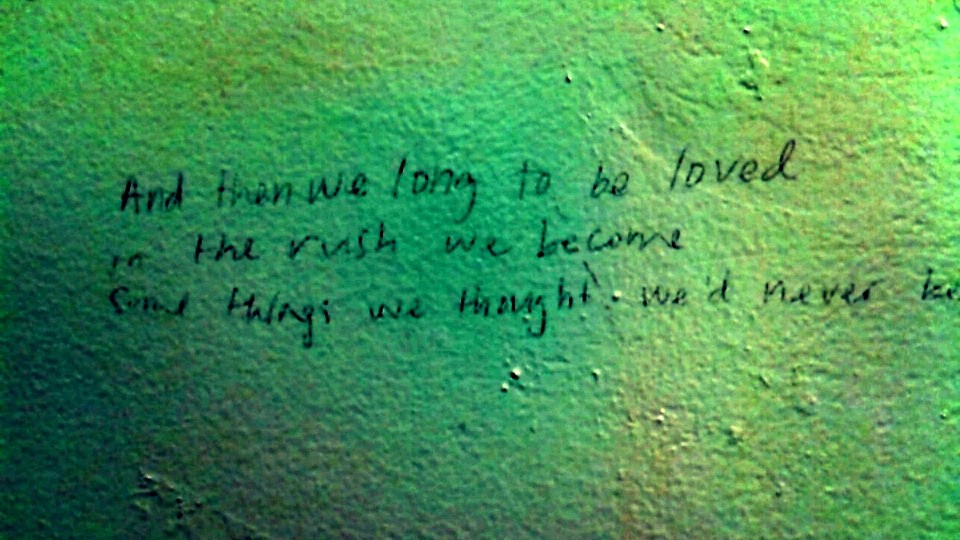 And then we long to be loved
in the rush we become
some things we thought we'd never be